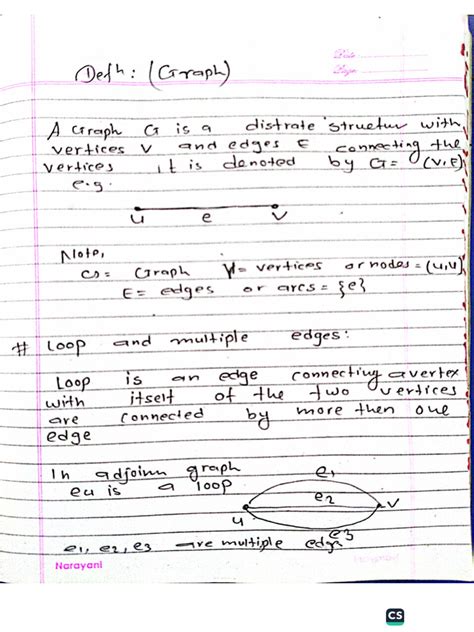 Date
Page
Defn: (Graph)
A Graph G is a distrate structur with
vertices V and edges E connecting the
vertices it is denoted by G= (V,E)
e.g.
u e v
Note,
G= Graph V= vertices or nodes = (u,v)
E= edges or arcs = {e}
# Loop and multiple edges:
Loop is an edge connecting a vertex
with itself of the two vertices
are connected by more then one
edge
In adjoinn graph
e4 is a loop
e1
e2
u v
e3
e1, e2, e3 are multiple edge
Narayani
CS